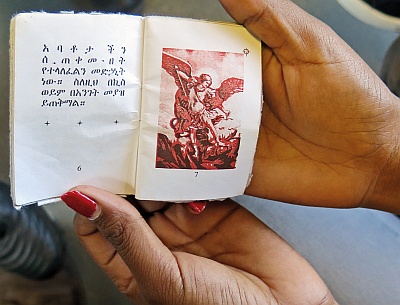 አባቶታችን
ስ.ጠቀሙ·በት
የተላለፈልን መድኃኒት
ነው። ስለዚህ በኪስ
ወይም በአንገት መያዝ
ይጠቅማል።
+ + +
6
7